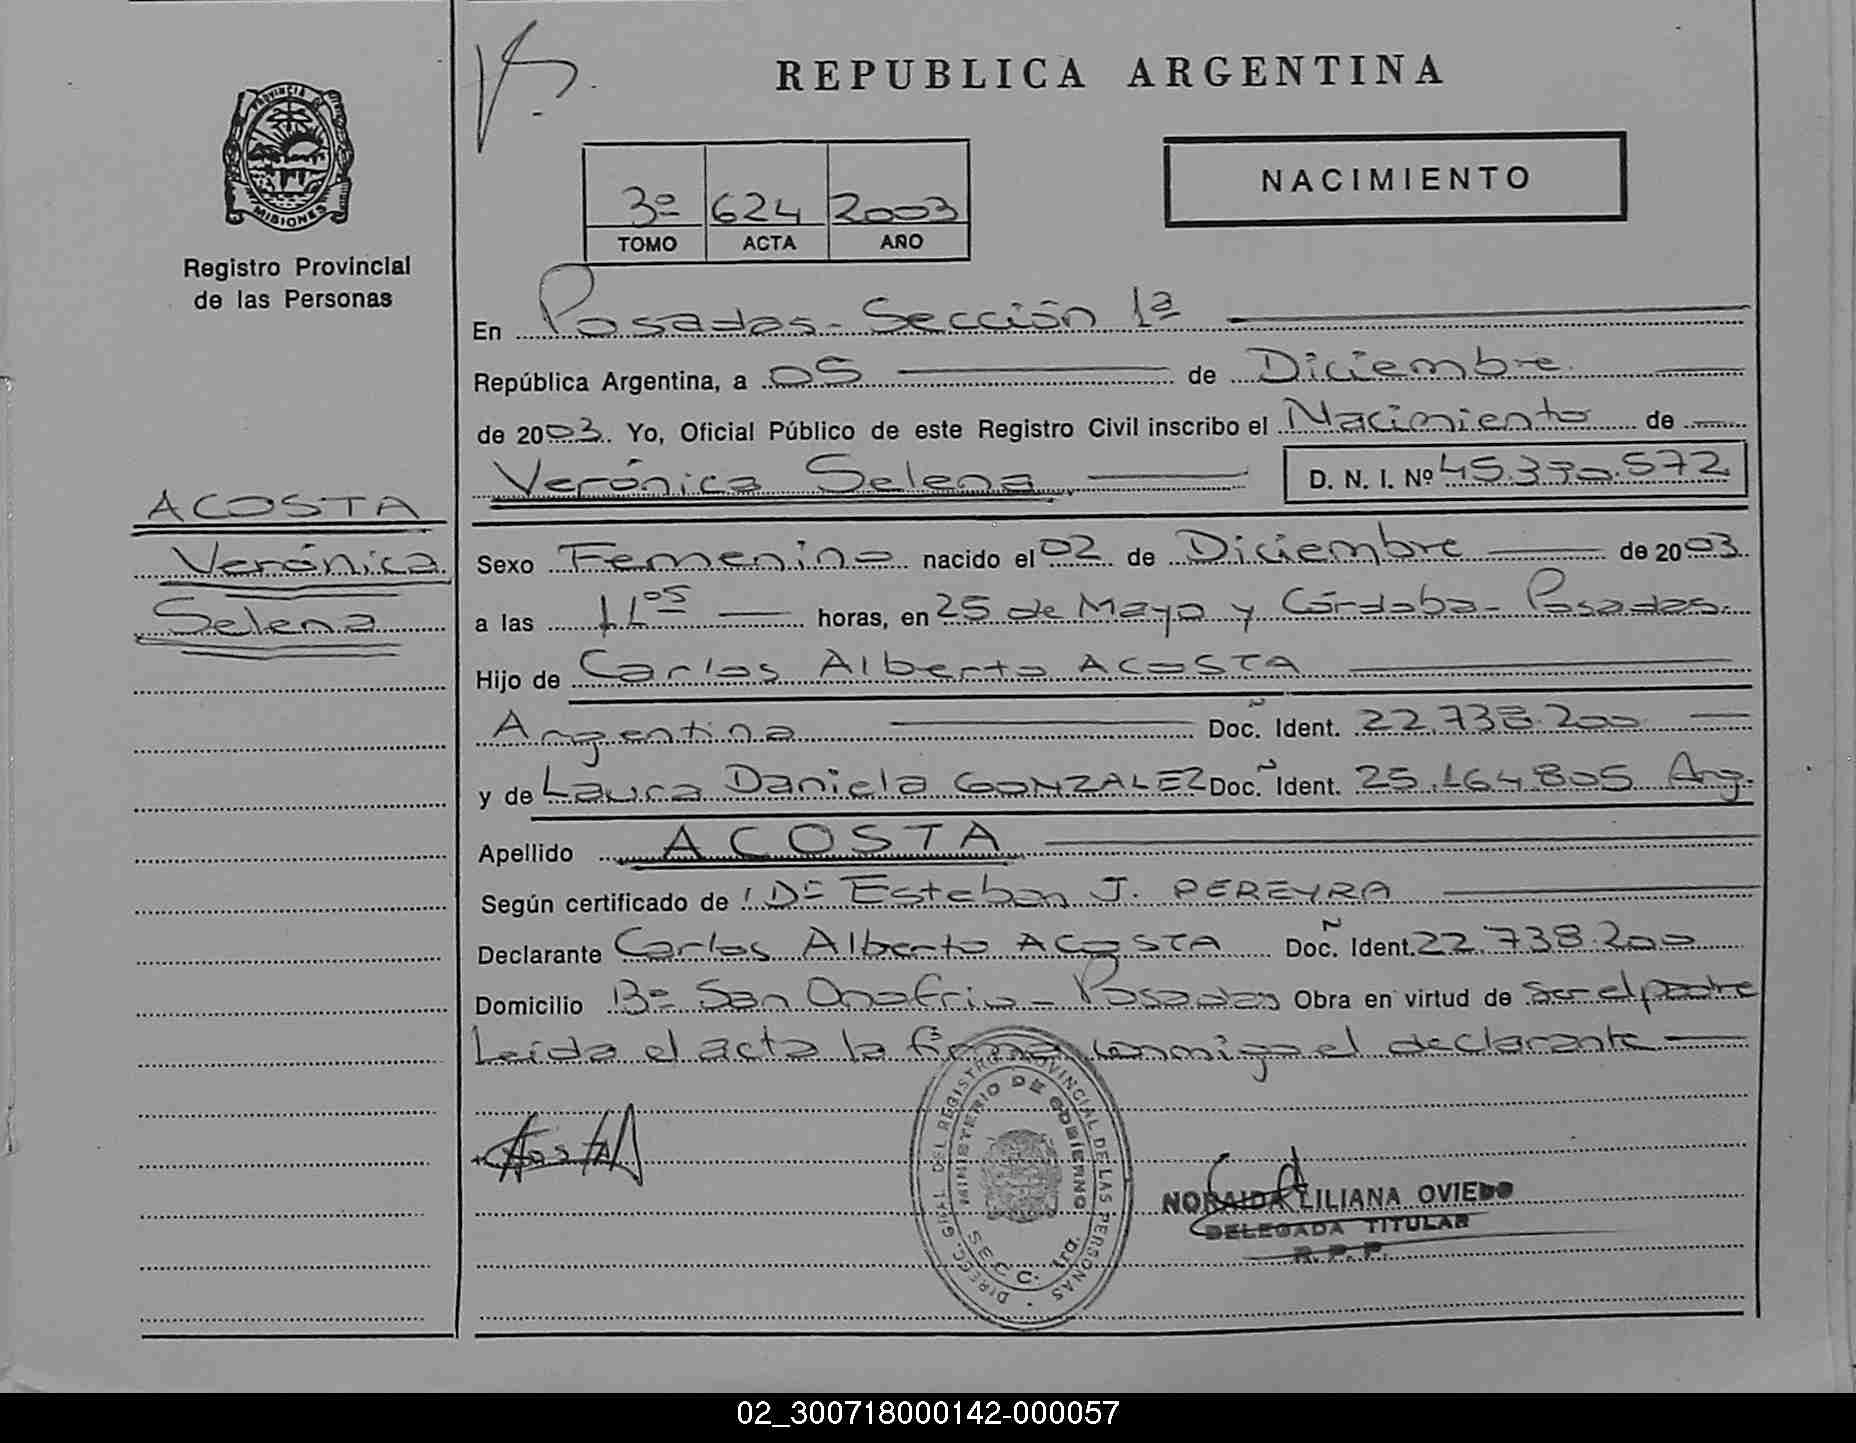 REPUBLICA ARGENTINA
PROVINCIA DE
MISIONES
Registro Provincial
de las Personas
3º 624 2003
TOMO ACTA AÑO
NACIMIENTO
En Posadas - Sección 1ª
República Argentina, a 05 de Diciembre
de 2003. Yo, Oficial Público de este Registro Civil inscribo el Nacimiento de
Verónica Selena D. N. I. Nº 45.370.572
ACOSTA
Verónica
Selena
Sexo Femenino nacido el 02 de Diciembre de 2003
a las 11 05 horas, en 25 de Mayo y Córdoba - Posadas
Hijo de Carlos Alberto ACOSTA
Argentina Doc. Ident. 22.738.200
y de Laura Daniela GONZALEZ Doc. Ident. 25.164.805 Arg.
Apellido ACOSTA
Según certificado de Esteban J. PEREYRA
Declarante Carlos Alberto ACOSTA Doc. Ident. 22.738.200
Domicilio Bº San Onofrio - Posadas Obra en virtud de ser el padre
Leída el acta la firma conmigo el declarante
DIRECC. GRAL. DEL REGISTRO PROVINCIAL DE LAS PERSONAS
MINISTERIO DE GOBIERNO
SECC. 1ra.
NORAIDA LILIANA OVIEDO
DELEGADA TITULAR
R. P. P.
02_300718000142-000057